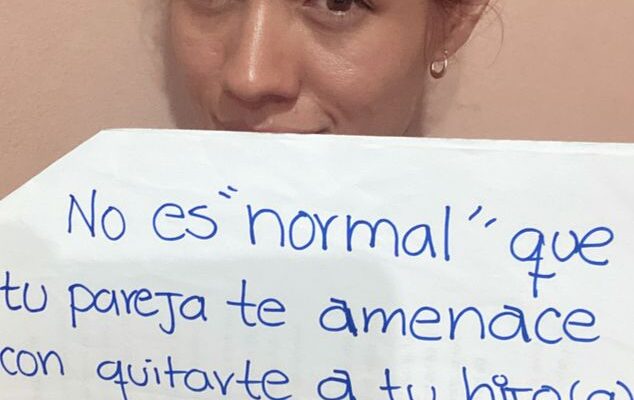 No es "normal" que
tu pareja te amenace
con quitarte a tu hijo(a)